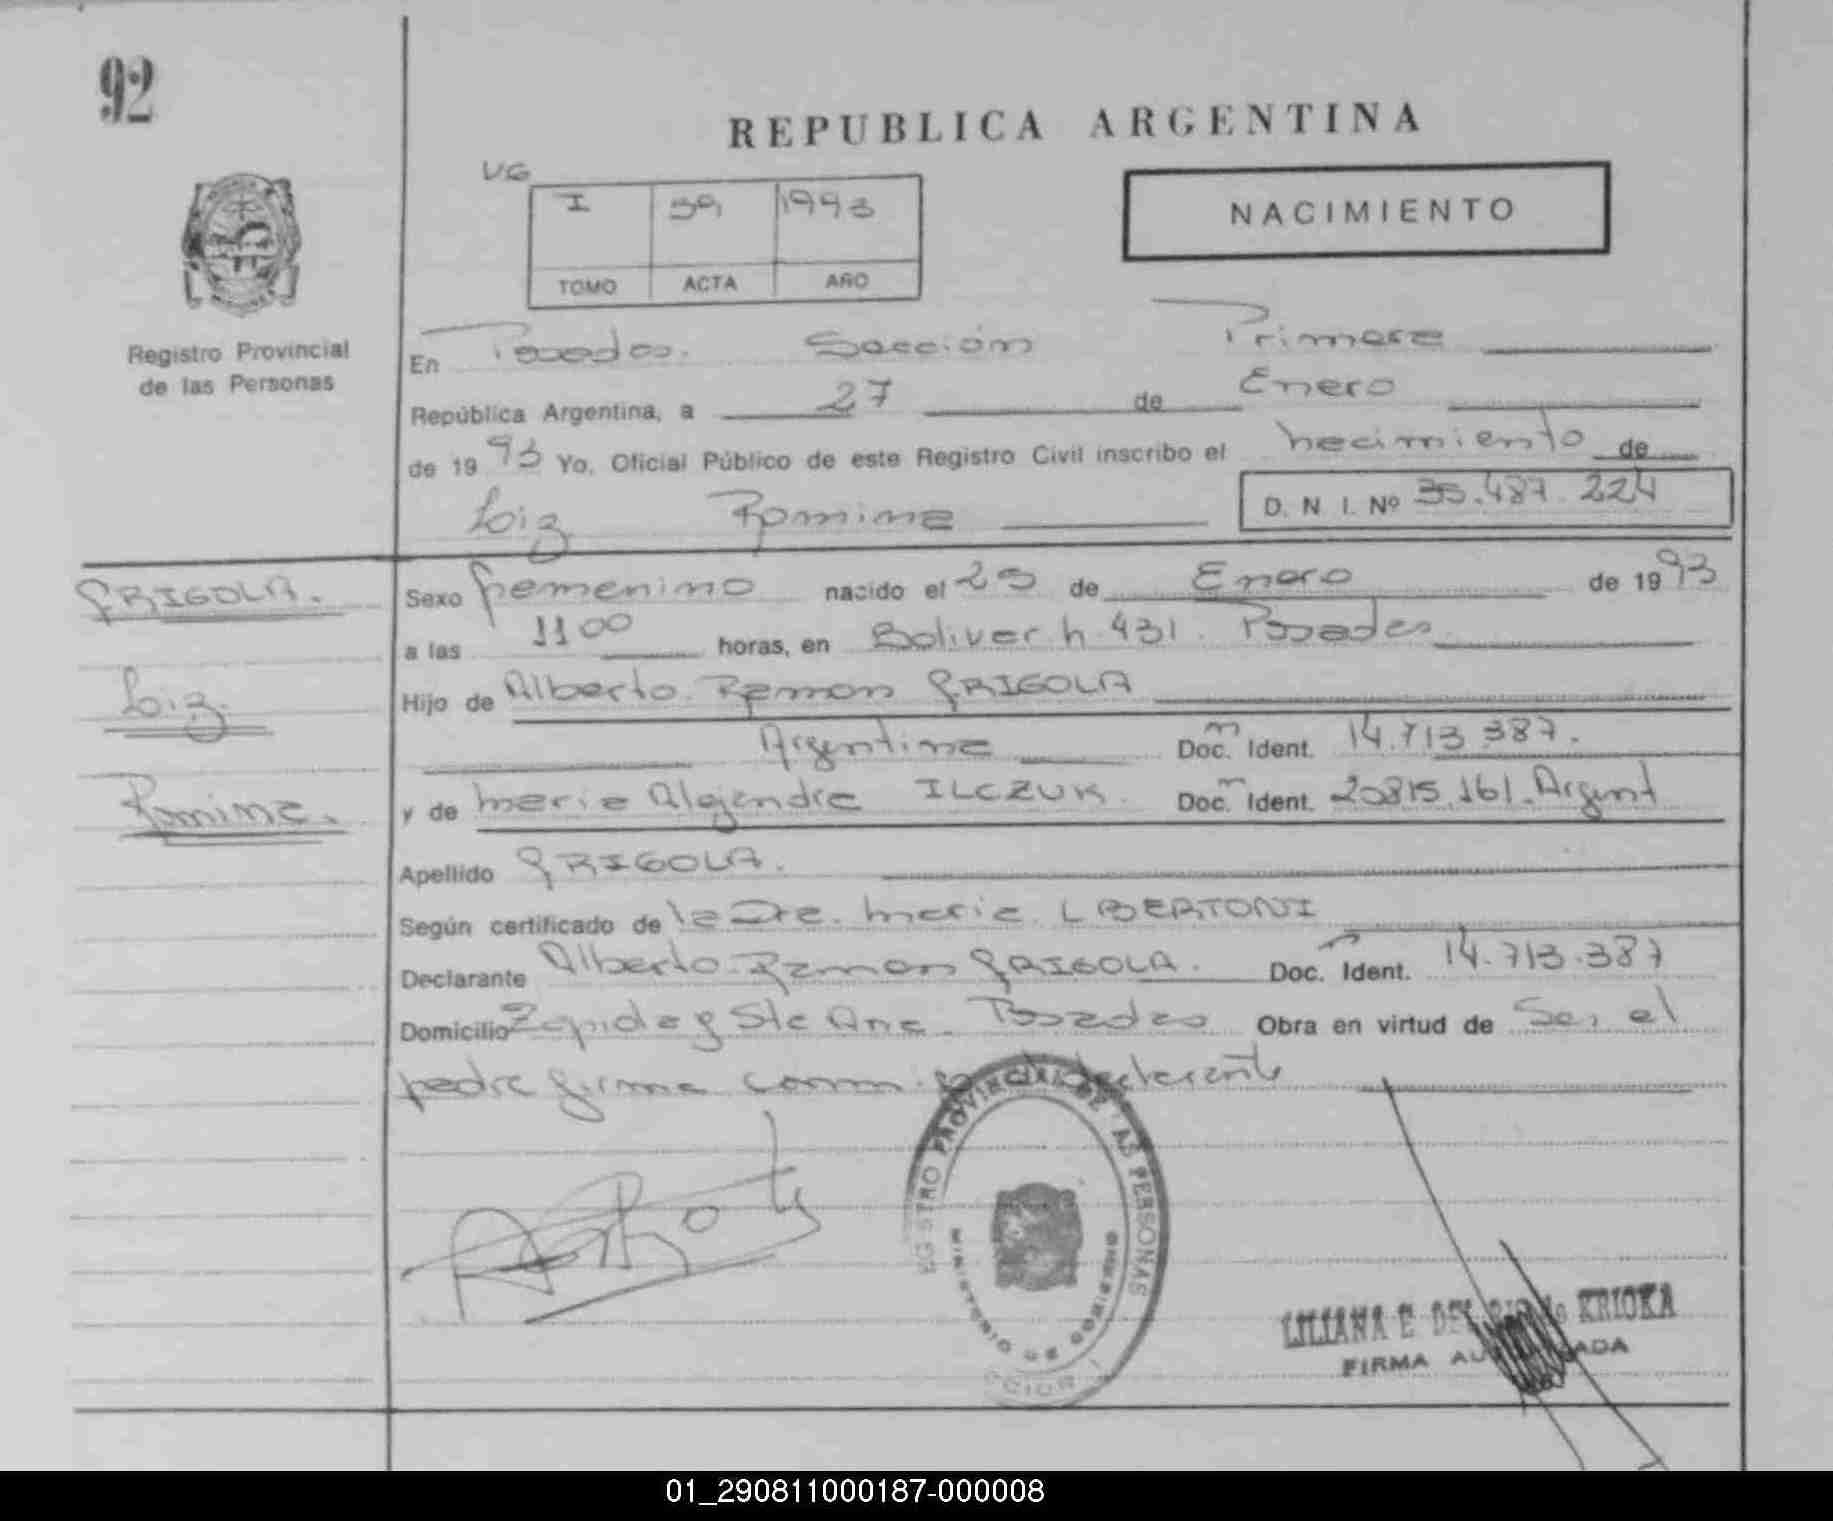 92
REPUBLICA ARGENTINA
VG
I 59 1993
TOMO ACTA AÑO
NACIMIENTO
Registro Provincial
de las Personas
En Posadas. Sección Primera
República Argentina, a 27 de Enero
de 1993 Yo, Oficial Público de este Registro Civil inscribo el nacimiento de
Loiz Romina D. N. I. Nº 35.487.224
GRIGOLA.
Loiz.
Romina.
Sexo femenino nacido el 25 de Enero de 1993
a las 11 00 horas, en Bolivar h. 431. Posadas
Hijo de Alberto Ramon GRIGOLA
Argentina Doc. Ident. 14.713.387.
y de Maria Alejandra ILCZUK. Doc. Ident. 20815.161. Argent
Apellido GRIGOLA.
Según certificado de la Dra. Maria L BERTONI
Declarante Alberto Ramon GRIGOLA. Doc. Ident. 14.713.387
Domicilio y Sta Ana. Posadas Obra en virtud de Ser el
padre firma conmigo el declarante
REGISTRO PROVINCIAL DE LAS PERSONAS
MINISTERIO DE GOBIERNO
LILIANA E DEL KRIOKA
FIRMA AUTORIZADA
01_290811000187-000008